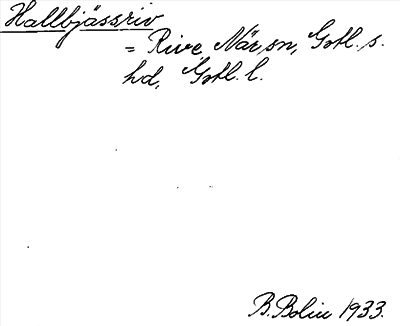 Hallbjässriv
= Rive, När, sn, Gotl. s.
hd, Gotl. l.
B. Bolin 1933.